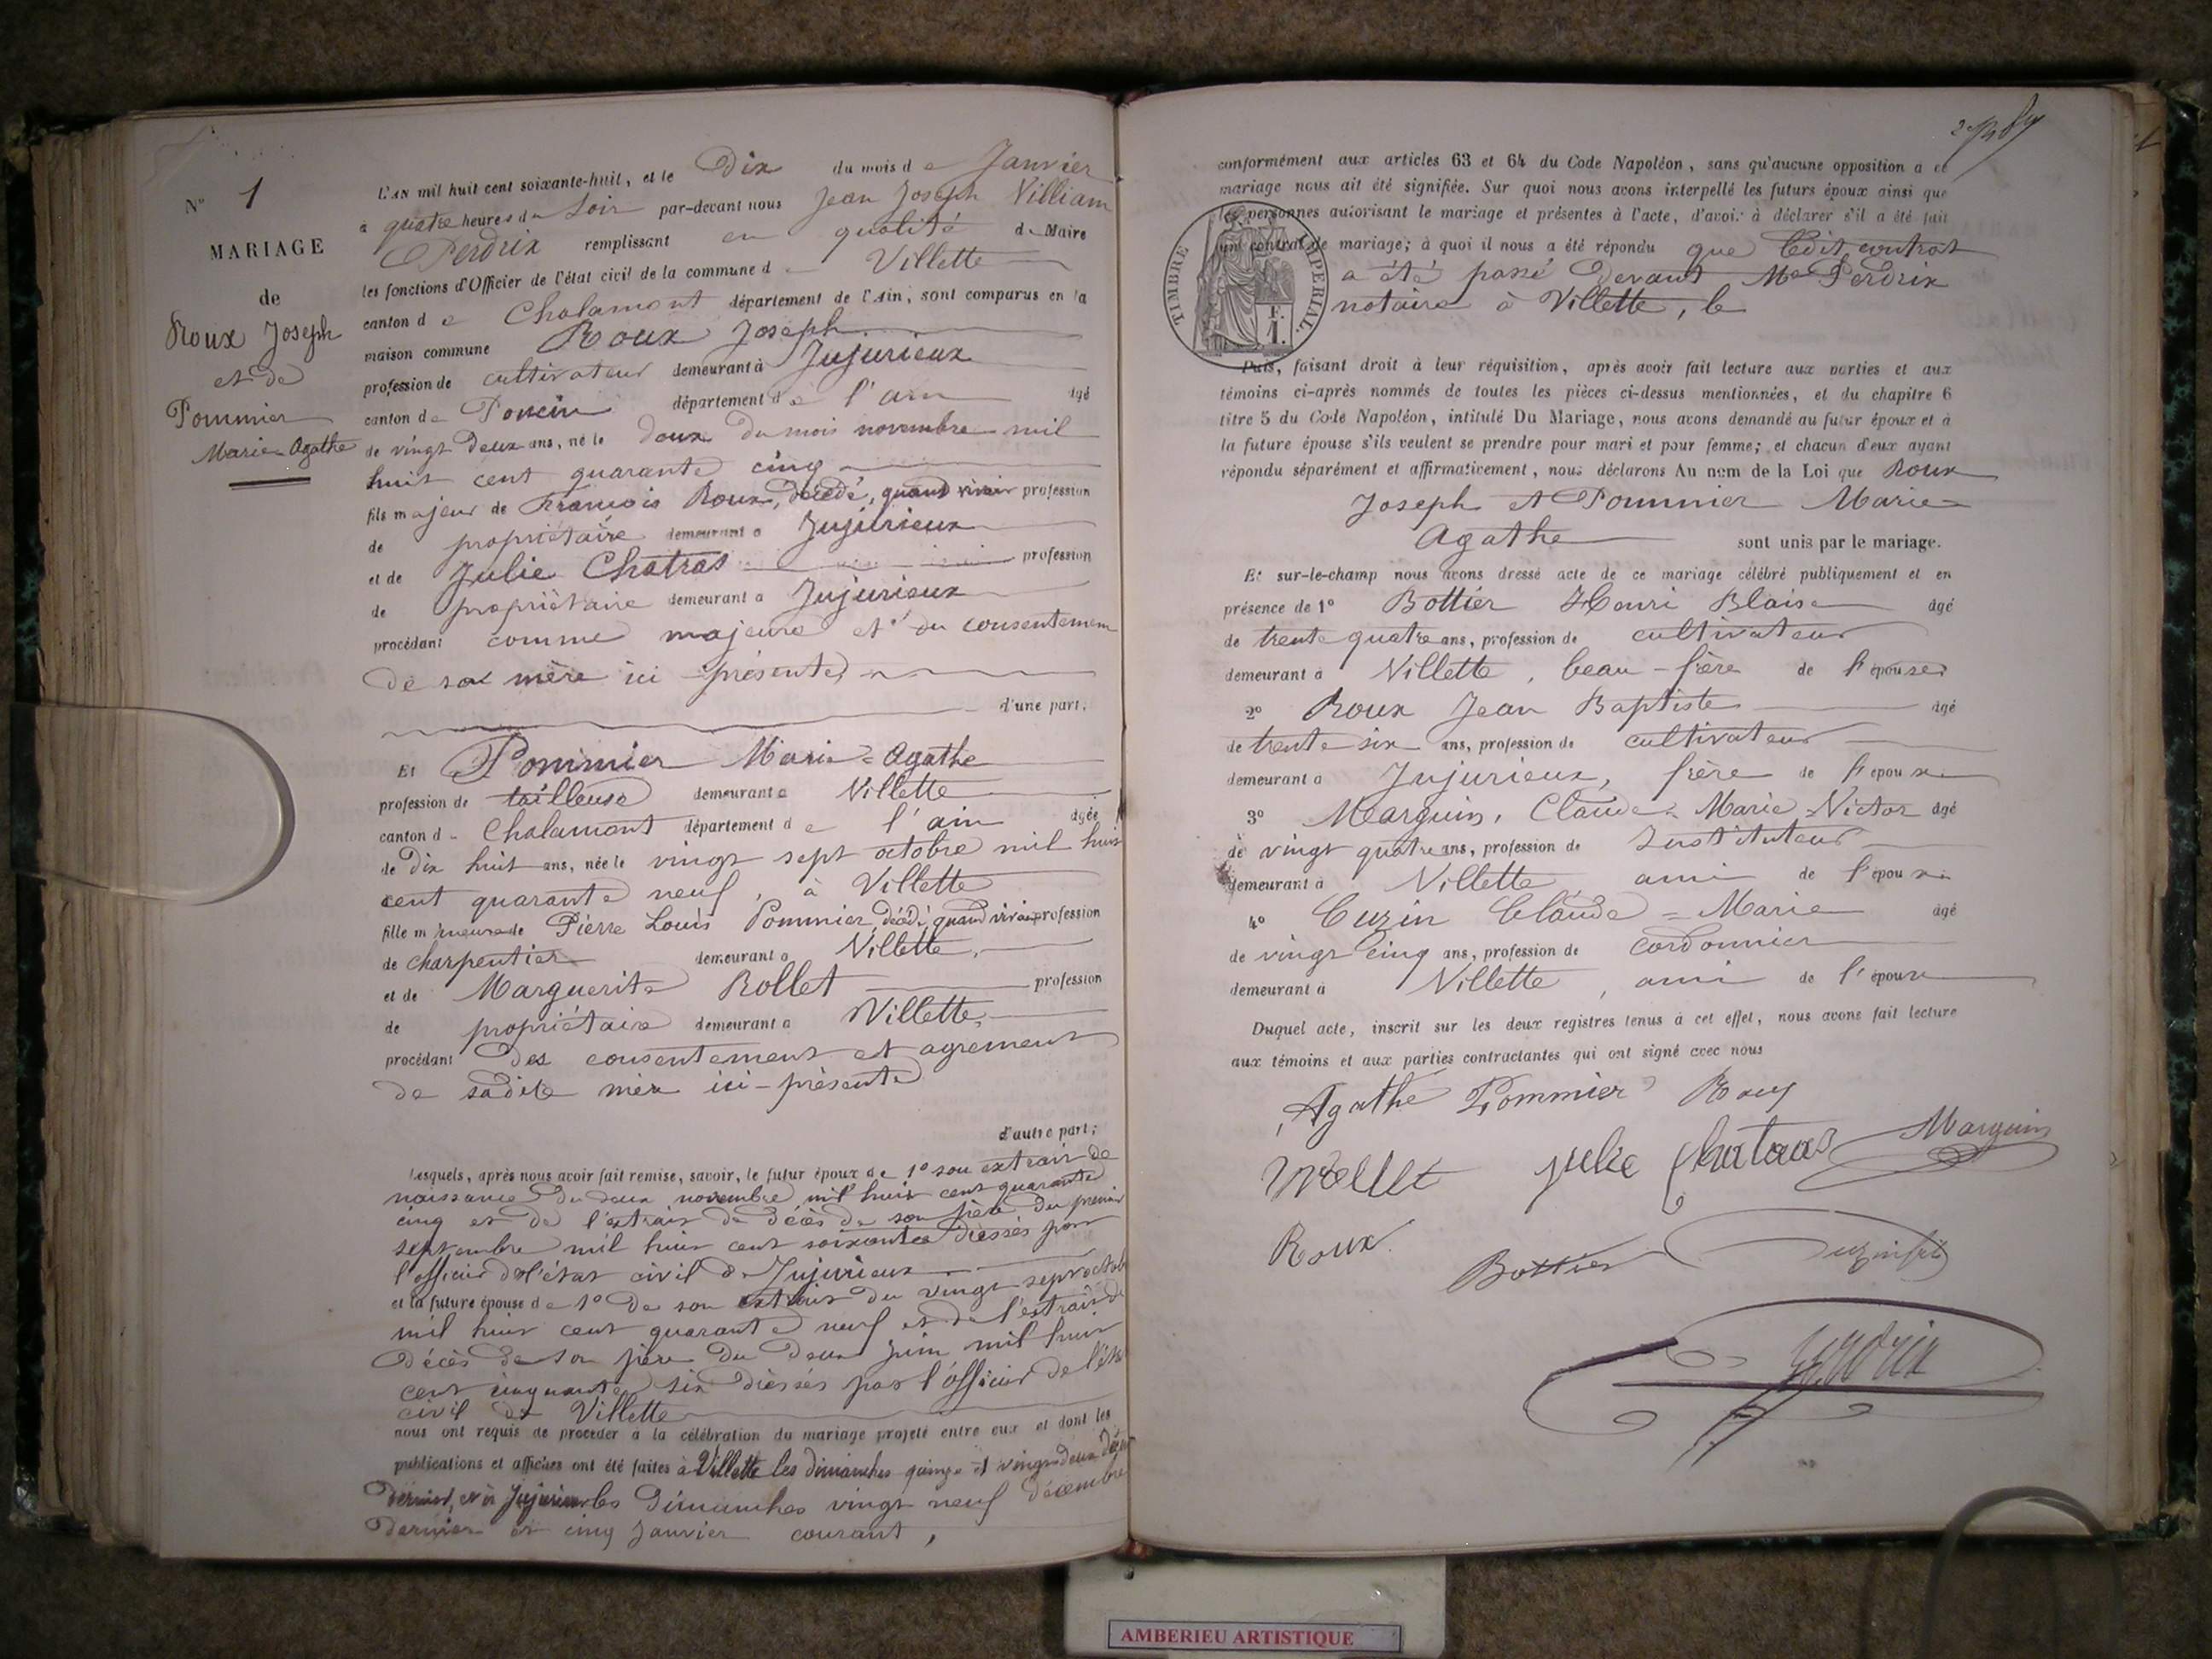 N° 1
MARIAGE
de
Roux Joseph
et de
Pommier
Marie-Agathe
L'AN mil huit cent soixante-huit, et le Dix du mois de Janvier
à quatre heures du Soir par-devant nous Jean Joseph Villiam
Perdrix remplissant en qualité de Maire
les fonctions d'Officier de l'état civil de la commune de Villette
canton de Chalamont département de l'Ain, sont comparus en la
maison commune Roux Joseph
profession de cultivateur demeurant à Jujurieux
canton de Poncin département de l'ain âgé
de vingt deux ans, né le deux du mois novembre mil
huit cent quarante cinq
fils majeur de François Roux, décédé, quand vivait profession
de propriétaire demeurant à Jujurieux
et de Julie Chatras profession
de propriétaire demeurant à Jujurieux
procédant comme majeure et du consentement
de sa mère ici présente
d'une part;
Et Pommier Marie=Agathe
profession de tailleuse demeurant à Villette
canton de Chalamont département de l'ain âgée
de dix huit ans, née le vingt sept octobre mil huit
cent quarante neuf, à Villette
fille mineure de Pierre Louis Pommier, décédé, quand vivait profession
de charpentier demeurant à Villette,
et de Marguerite Rollet profession
de propriétaire demeurant à Villette,
procédant des consentement et agrement
de sadite mère ici-présente
d'autre part;
Lesquels, après nous avoir fait remise, savoir, le futur époux de 1° son extrait de
naissance du deux novembre mil huit cent quarante
cinq et de l'extrait de décès de son père du premier
septembre mil huit cent soixante dressés par
l'officier de l'état civil de Jujurieux
et la future épouse de 1° de son extrait du vingt sept octob
mil huit cent quarante neuf et de l'extrait de
décès de son père du deux juin mil huit
cent cinquante six dressés par l'officier de l'état
civil de Villette
nous ont requis de procéder à la célébration du mariage projeté entre eux et dont les
publications et affiches ont été faites à Villette les dimanches quinze et vingt deux décem
dernier, et à Jujurieux les Dimanches vingt neuf décembre
dernier et cinq janvier courant,
conformément aux articles 63 et 64 du Code Napoléon, sans qu'aucune opposition à ce
mariage nous ait été signifiée. Sur quoi nous avons interpellé les futurs époux ainsi que
les personnes autorisant le mariage et présentes à l'acte, d'avoir à déclarer s'il a été fait
un contrat de mariage; à quoi il nous a été répondu que ledit contrat
a été passé devant Me Perdrix
notaire à Villette, le
TIMBRE IMPERIAL.
F.
1.
Puis, faisant droit à leur réquisition, après avoir fait lecture aux parties et aux
témoins ci-après nommés de toutes les pièces ci-dessus mentionnées, et du chapitre 6
titre 5 du Code Napoléon, intitulé Du Mariage, nous avons demandé au futur époux et à
la future épouse s'ils veulent se prendre pour mari et pour femme; et chacun d'eux ayant
répondu séparément et affirmativement, nous déclarons Au nom de la Loi que Roux
Joseph et Pommier Marie=
Agathe sont unis par le mariage.
Et sur-le-champ nous avons dressé acte de ce mariage célébré publiquement et en
présence de 1° Bottier Henri Blaise âgé
de trente quatre ans, profession de cultivateur
demeurant à Villette, beau-frère de l'épouse
2° Roux Jean Baptiste âgé
de trente six ans, profession de cultivateur
demeurant à Jujurieux, frère de l'époux
3° Marguin, Claude=Marie=Victor âgé
de vingt quatre ans, profession de Instituteur
demeurant à Villette ami de l'époux
4° Cuzin Claude=Marie âgé
de vingt cinq ans, profession de cordonnier
demeurant à Villette, ami de l'époux
Duquel acte, inscrit sur les deux registres tenus à cet effet, nous avons fait lecture
aux témoins et aux parties contractantes qui ont signé avec nous
Agathe Pommier Roux
Julie Chatras Marguin
Roux Bottier Cuzin fils
Perdrix
AMBERIEU ARTISTIQUE